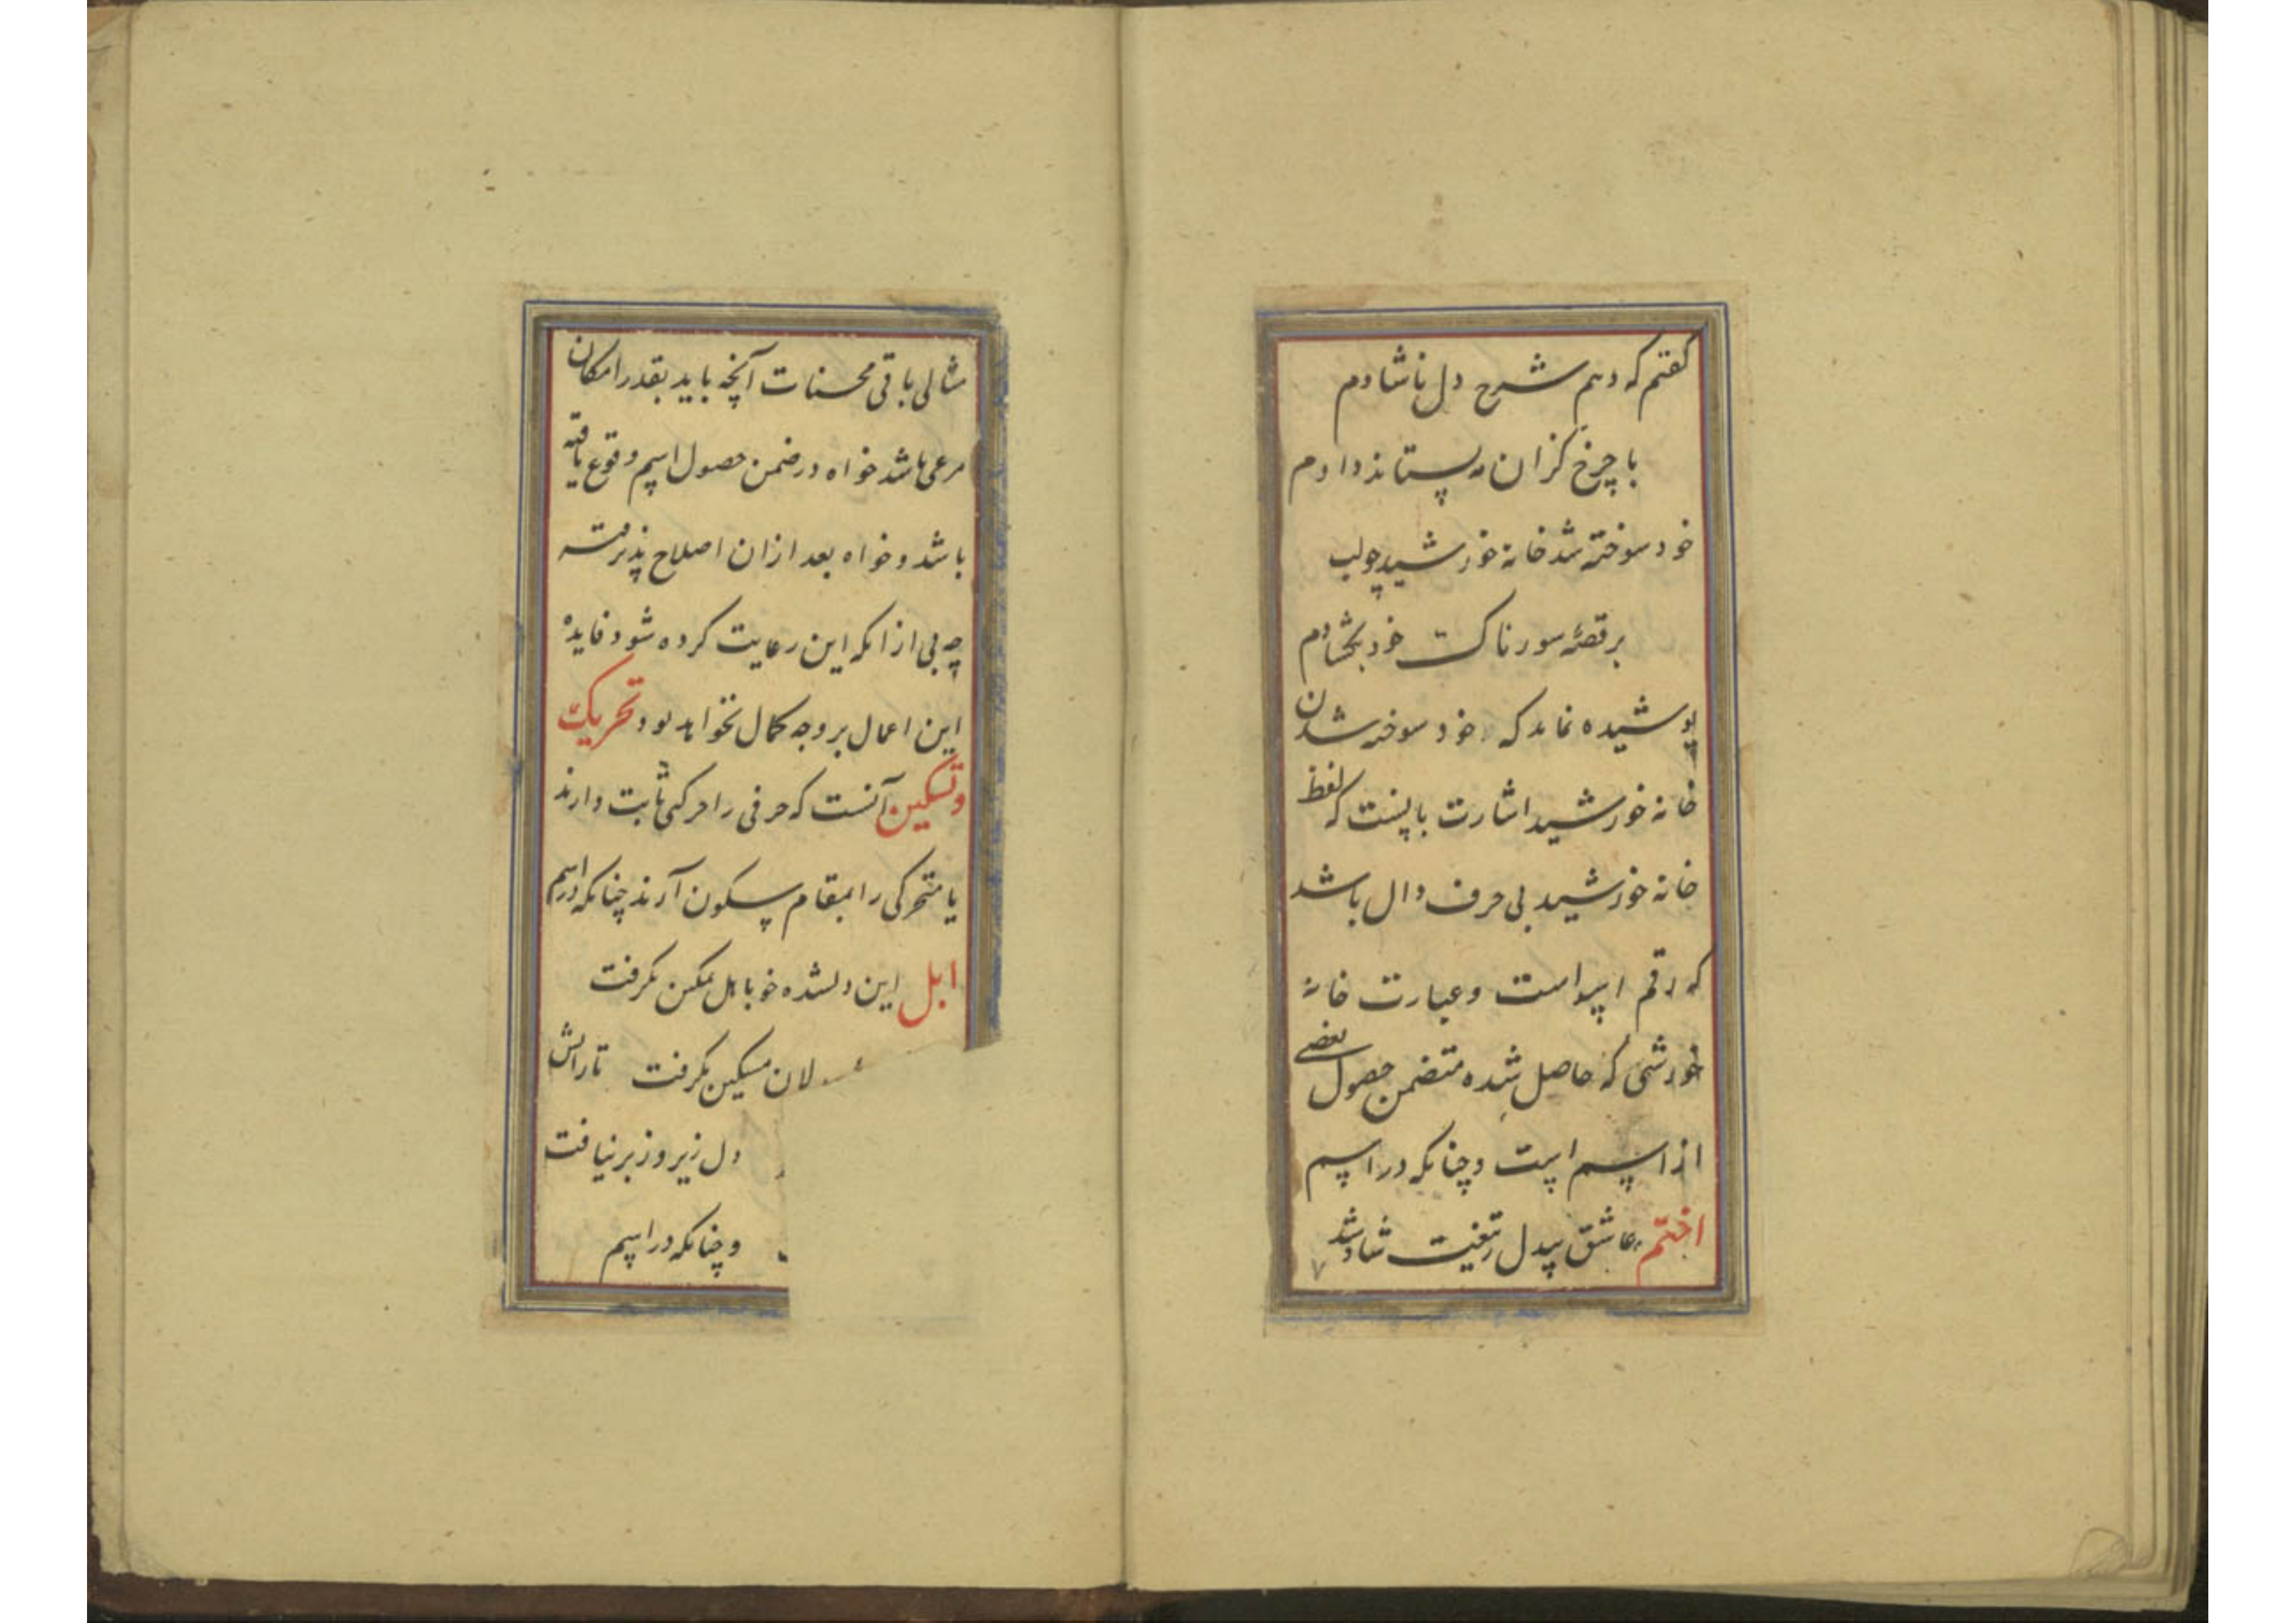 گفتم که دهم شرح دل ناشادم
با چرخ کزان مه بستاند دادم
خود سوخته شد خانه خورشید چو لب
بر قصه سوزناک خود بگشادم
پوشیده نماند که خود سوخته شدن
خانه خورشید اشارت باینست که لفظ
خانه خورشید بی حرف دال باشد
که رقم اسد است و عبارت خانه
خورشی که حاصل شده متضمن حصول بعضی
از اسم است و چنانکه در اسم
اختم عاشق بیدل تیغت شاد شد
مثالی باقی محسنات آنچه باید بقدر امکان
مرعی باشد خواه در ضمن حصول اسم وقوع یافته
باشد و خواه بعد ازان اصلاح پذیرفته
چه بی ازانکه این رعایت کرده شود فایده
این اعمال بر وجه کمال نخواهد بود تحریک
و تسکین آنست که حرفی را حرکتی ثابت دارند
یا متحرکی را بمقام سکون آرند چنانکه در اسم
ابل این دلشده خو باهل تمکین نگرفت
لان مسکین نگرفت تا رایش
دل زیر و زبر نیافت
و چنانکه در اسم